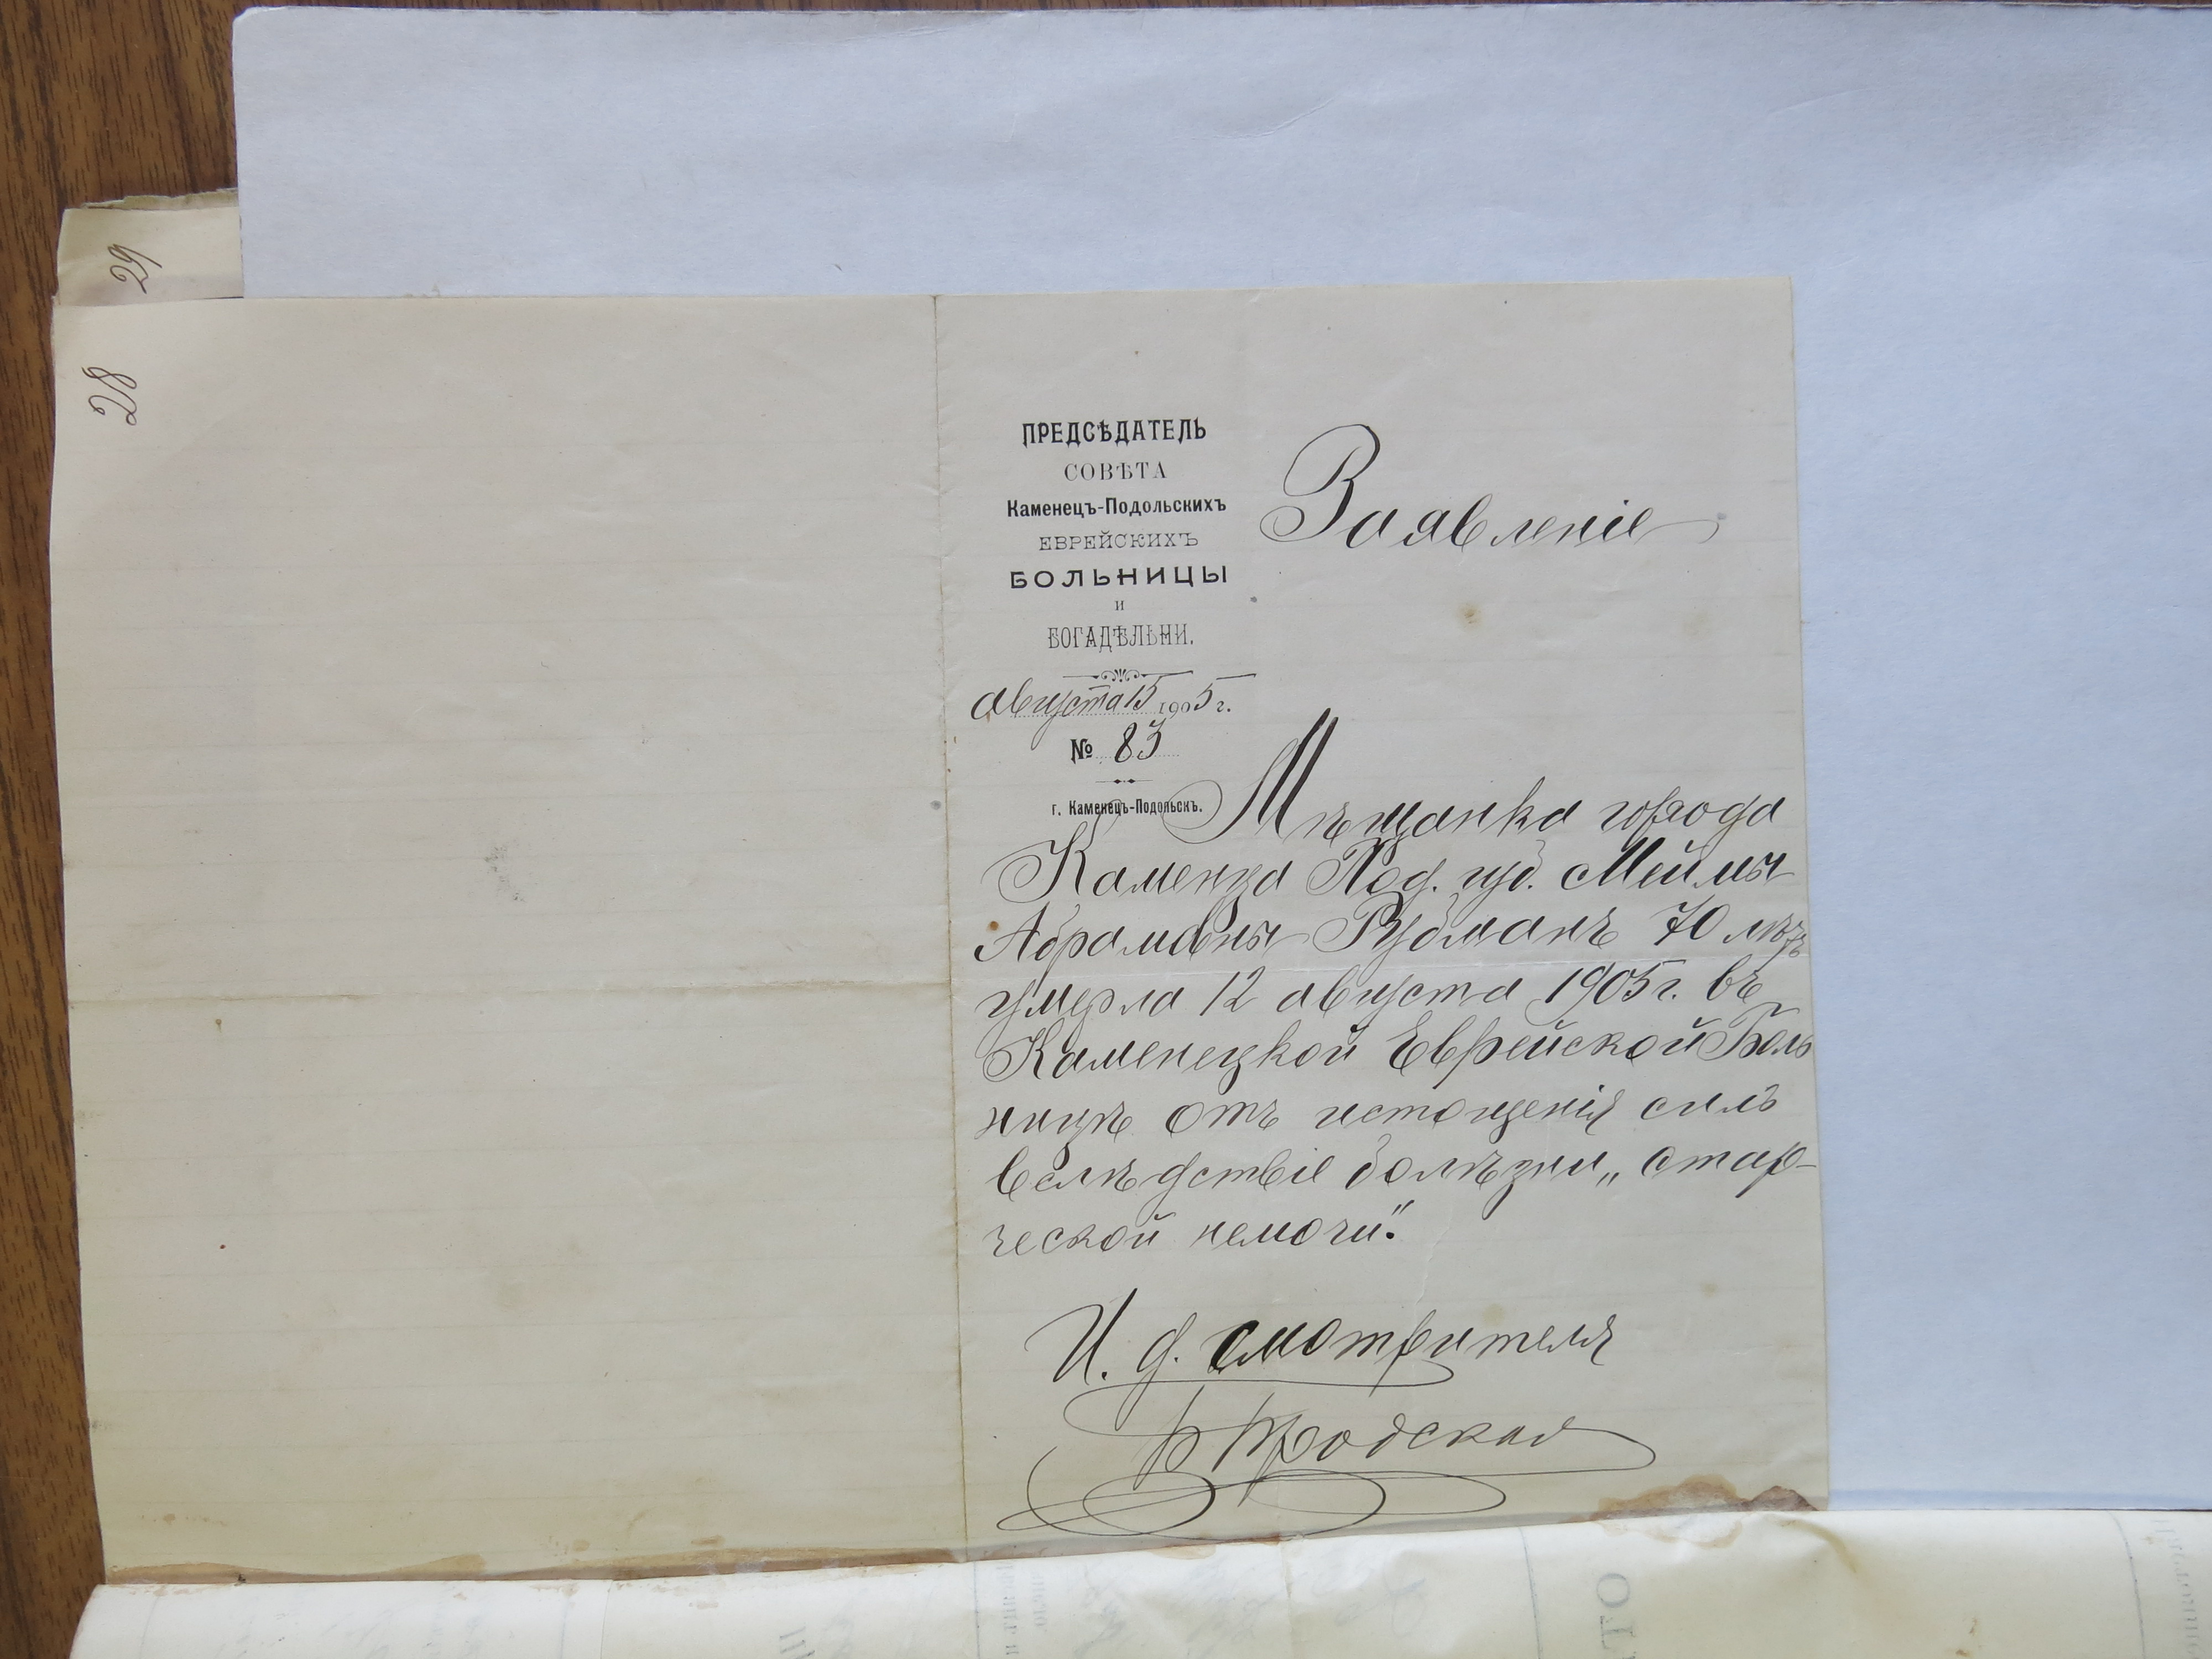 29
28
ПРЕДСѢДАТЕЛЬ
СОВѢТА
Каменецъ-Подольскихъ
ЕВРЕЙСКИХЪ
БОЛЬНИЦЫ
и
БОГАДѢЛЬНИ.
августа 15 1905 г.
№ 83
г. Каменецъ-Подольскъ.
Заявленіе
Мѣщанка города
Каменца Под. губ. Меймы
Абрамовны Рубманъ 70 лѣтъ
умерла 12 августа 1905 г. въ
Каменецкой Еврейской Боль
ницѣ отъ истощенія силъ
вслѣдствіе болѣзни „стар-
ческой немочи".
И. д. смотрителя
Бродская